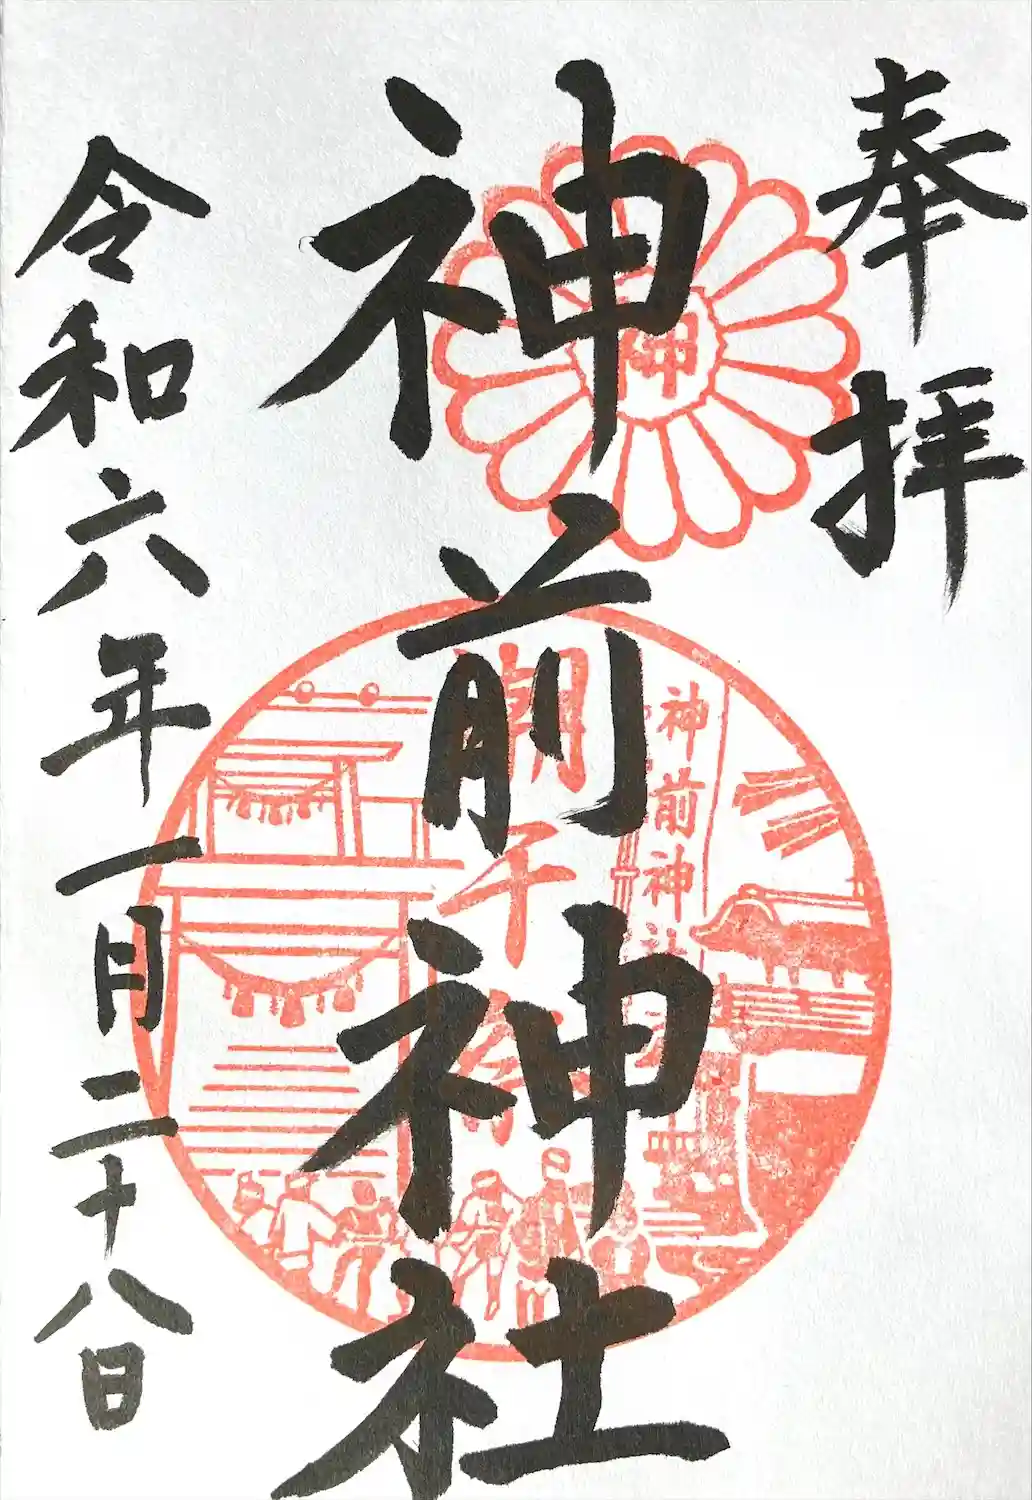 奉拝
神前神社
神
神前神社
令和六年一月二十八日